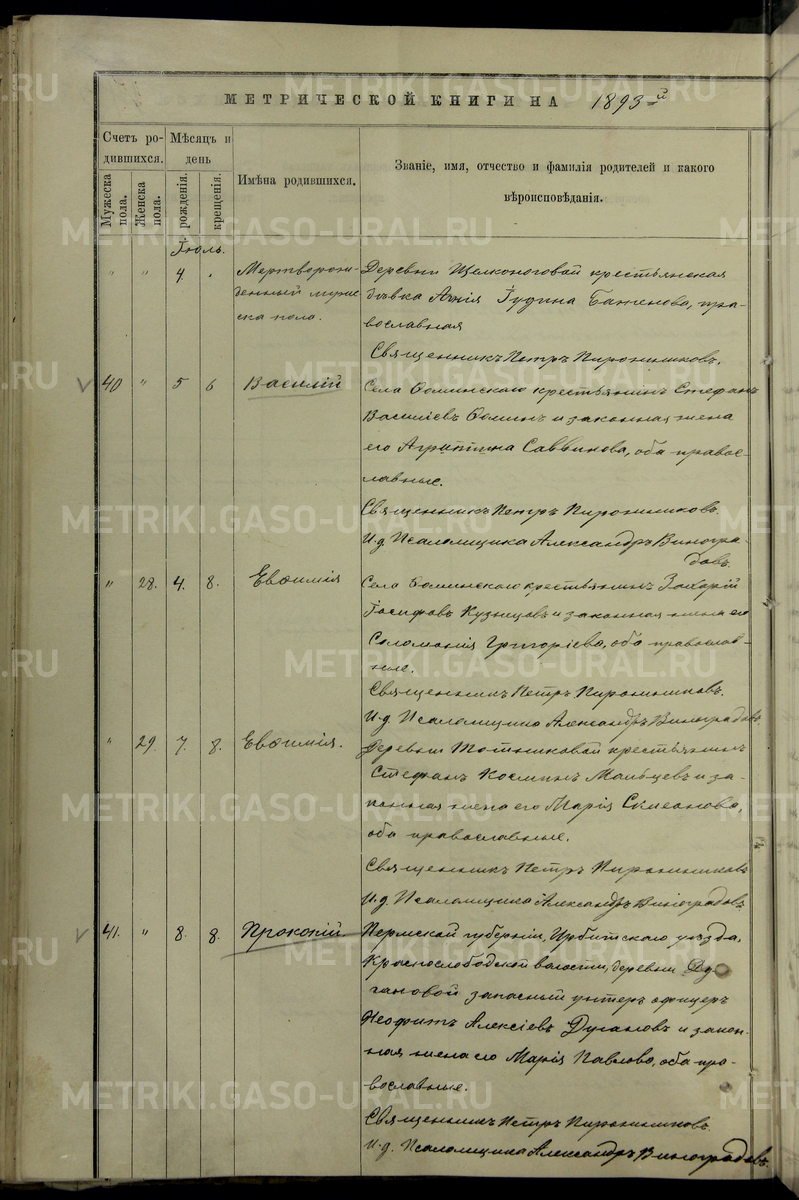 МЕТРИЧЕСКОЙ КНИГИ НА 1893 й
Счетъ ро-
дившихся.
Мѣсяцъ и
день
Мужеска
пола.
Женска
пола.
рожденія.
крещенія.
Имѣна родившихся.
Званіе, имя, отчество и фамилія родителей и какого
вѣроисповѣданія.
Іюль.
" " 4. .
Мертворож-
денный муже-
ска пола.
Деревни Щелконоговой крестьянская
дѣвка Анія Іудина Баженова, пра-
вославная
Священникъ Петръ Пироженниковъ.
40 " 5 6 Василій
Села Ѳоминскаго крестьянинъ Стефанъ
Василіевъ Ѳоминъ и законная жена
его Агриппина Саввинова, оба правос-
лавные.
Священникъ Петръ
И. д. Псаломщика Александръ Виногра-
довъ.
" 28. 4. 8. Евѳимія
Села Ѳоминскаго крестьянинъ Захарій
Іосифовъ Кузнцовъ и законная жена его
Соломонія Григоріева, оба православ-
ные.
Священникъ Петръ
И. д. Псаломщика Александръ Виноградовъ.
" 29. 7. 8. Евѳимія.
Деревни крестьянинъ
Стефанъ Косминъ Мальцевъ и за-
конная жена его Марія
оба православные.
Священникъ Петръ
И. д. Псаломщика Александръ Виноградовъ
41. " 8. 8. Прокопій.
Пермской губерніи, Ирбитскаго уѣзда,
Краснослободской волости, деревни Ду-
гановой запасный унтеръ офицеръ
Неофитъ Алексіевъ Дугановъ и закон-
ная жена его Марія Павлова, оба пра-
вославные.
Священникъ Петръ
И. д. Псаломщика Александръ Виноградовъ.
METRIKI.GASO-URAL.RU